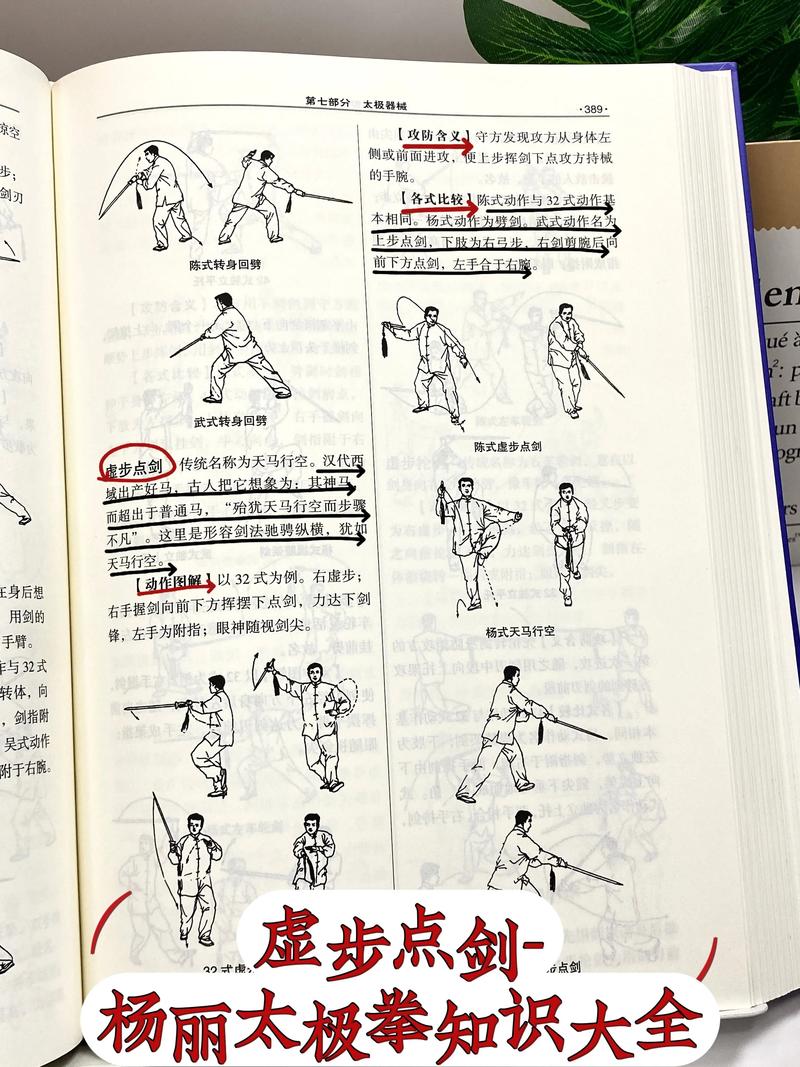 第七部分 太极器械
·389·
陈式转身回劈
武式转身回劈
虚步点剑 传统名称为天马行空。汉代西
域出产好马，古人把它想象为：其神马，
而超出于普通马，“殆犹天马行空而步骤
不凡”。这里是形容剑法驰骋纵横，犹如
天马行空。
【动作图解】以32式为例。右虚步；
右手握剑向前下方挥摆下点剑，力达下剑
锋，左手为附指；眼神随视剑尖。
【攻防含义】守方发现攻方从身体左
侧或前面进攻，便上步挥剑下点攻方持械
的手腕。
【各式比较】陈式动作与32式动作基
本相同。杨式动作为劈剑。武式动作名为
上步点剑，下肢为右弓步，右剑剪腕后向
前下方点剑，左手合于右腕。
陈式虚步点剑
杨式天马行空
32式虚
步点剑
掠空
步；
剑刃
在身后想
用剑的
手臂。
作与32式
转体，向
，剑指附
吴式动作
附于右腕。
虚步点剑-
杨丽太极拳知识大全
en
qué à
p
aft b
un
ogr
rs